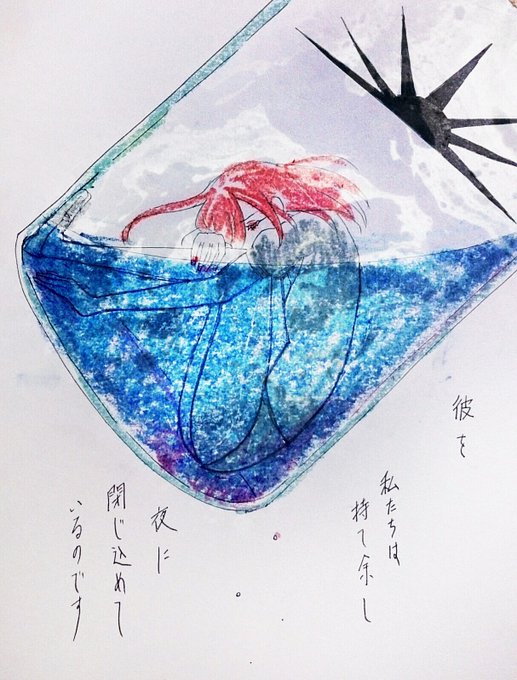 彼を
私たちは
持て余し
夜に
閉じ込めて
いるのです